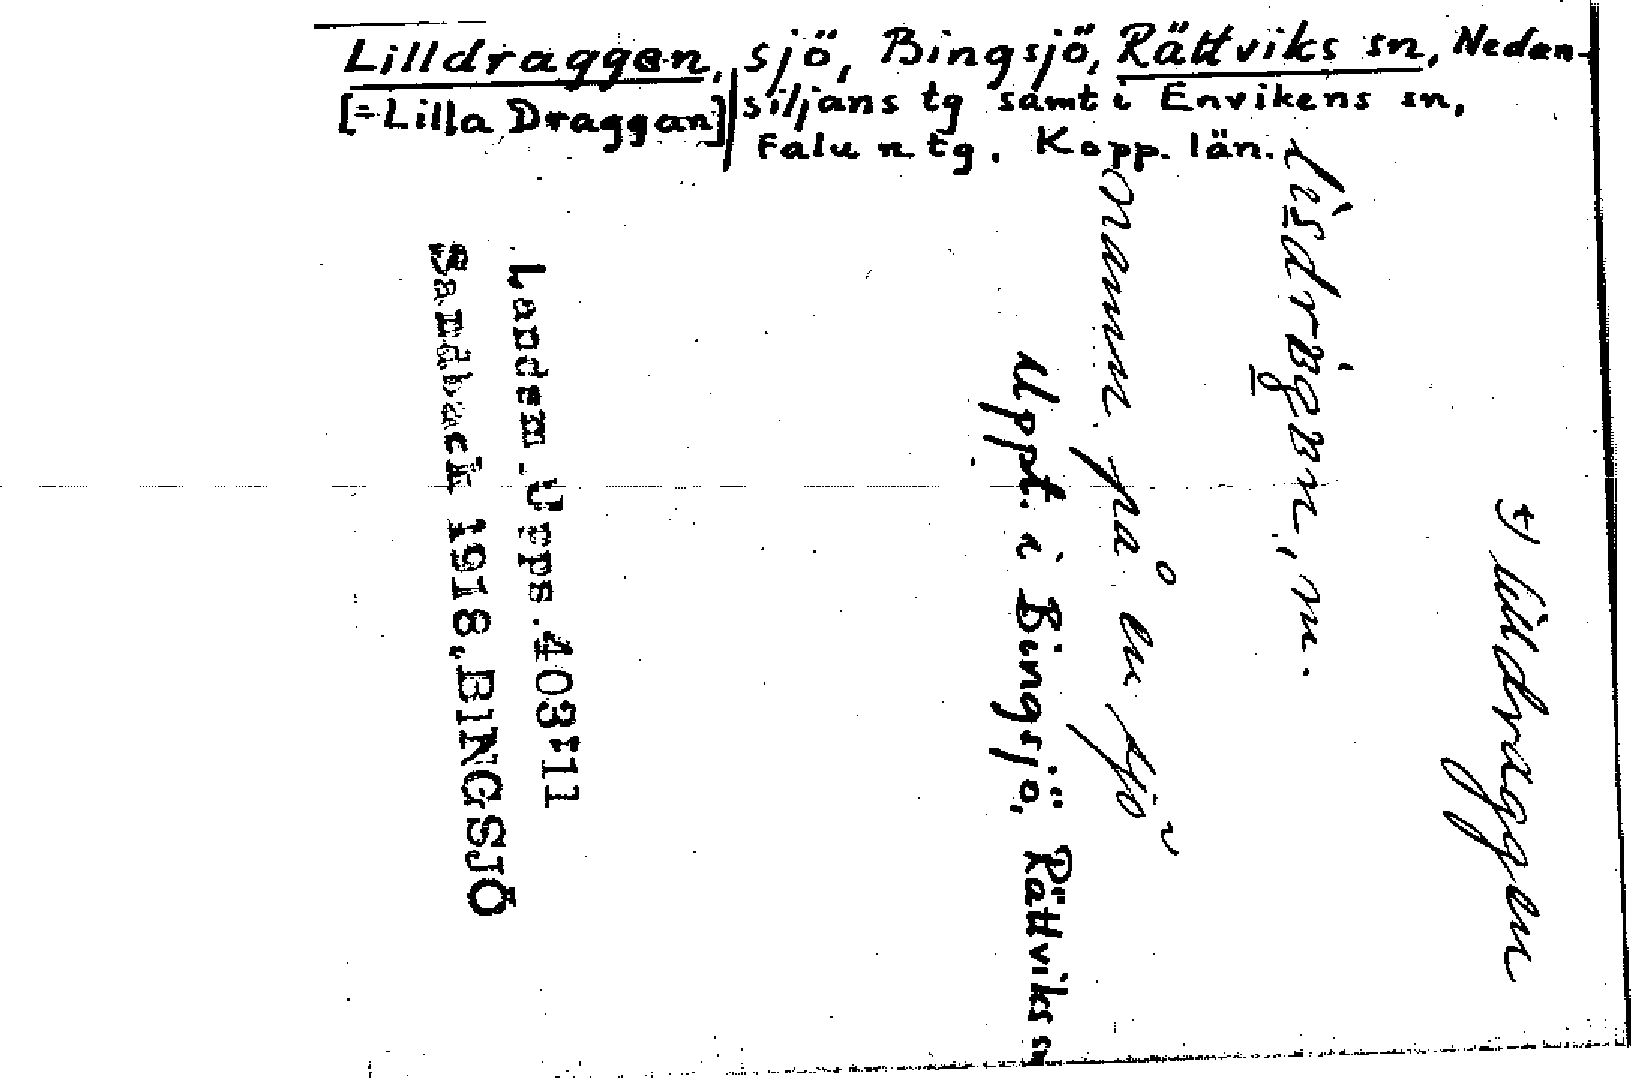 Lilldraggen, sjö, Bingsjö, Rättviks sn, Nedan-
[=Lilla Draggan] siljans tg samt i Envikens sn,
Falu n tg. Kopp. län.
+) Lilldraggen
m.
Namn på en sjö
Uppt. i Bingsjö, Rättviks sn
Landsm. Upps. 403:11
Sandbäck 1918, BINGSJÖ